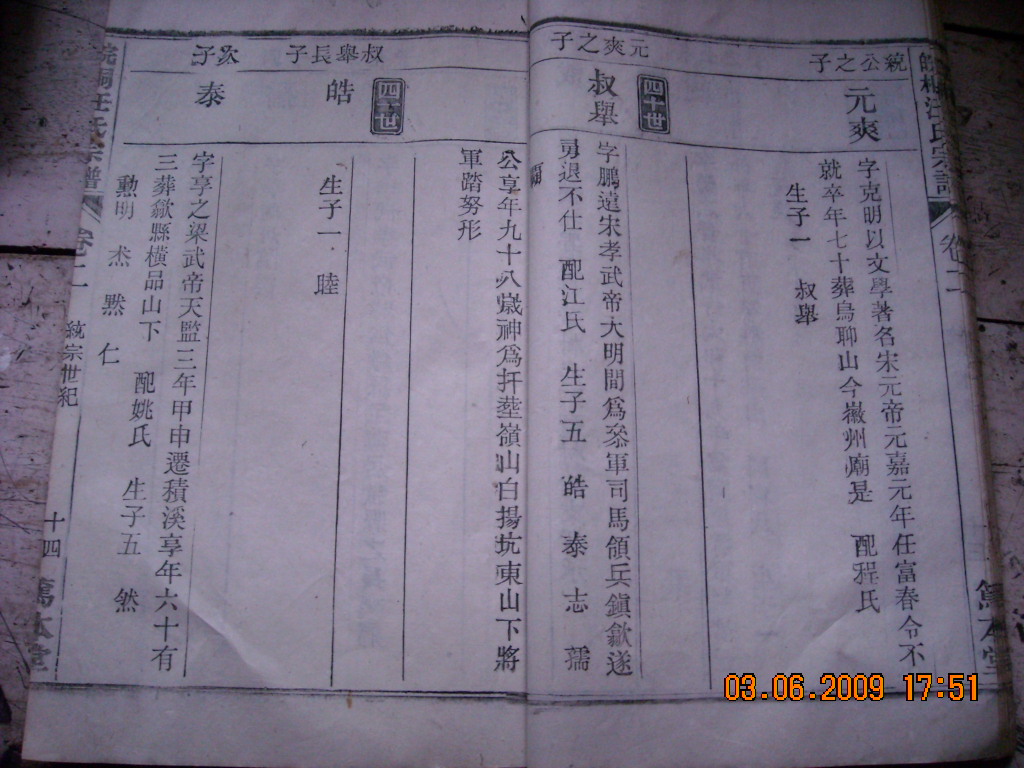 汪氏宗譜
卷二
統公之子
元爽
字克明以文學著名宋元帝元嘉元年任富春令不
就卒年七十葬烏聊山今徽州廟是 配程氏
生子一 叔舉
四十世
元爽之子
叔舉
字鵬遠宋孝武帝大明間為叅軍司馬領兵鎮歙遂
勇退不仕 配江氏 生子五 皓 泰 志 孺
公享年九十八歲神爲扞塟嶺山白揚坑東山下將
軍踏弩形
叔舉長子
皓
生子一 睦
次子
泰
字亨之梁武帝天監三年甲申遷積溪享年六十有
三葬歙縣橫品山下 配姚氏 生子五 然
勳明 杰 㸃 仁
汪氏宗譜
卷二
統宗世紀
十四
篤本堂